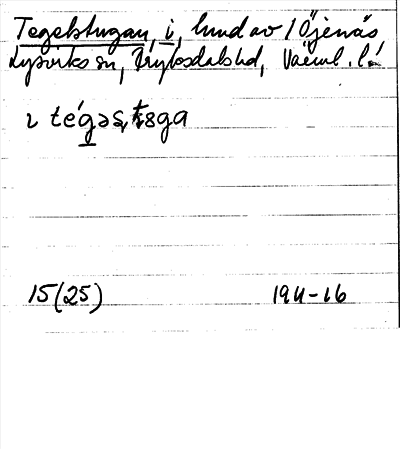 Tegelstugan, i, lund av / Öjenäs
Lysviks sn, Fryksdals hd, Värml. l.
ı tégəs
15(25) 1911-16